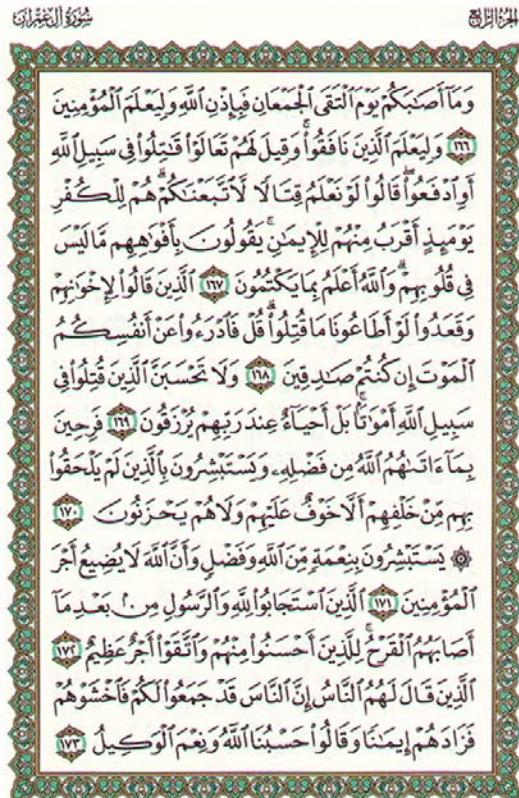 سُورَةُ آلِ عِمْرَان
الجُزْءُ الرَّابِعُ
وَمَآ أَصَٰبَكُمْ يَوْمَ ٱلْتَقَى ٱلْجَمْعَانِ فَبِإِذْنِ ٱللَّهِ وَلِيَعْلَمَ ٱلْمُؤْمِنِينَ
١٦٦ وَلِيَعْلَمَ ٱلَّذِينَ نَافَقُوا۟ۚ وَقِيلَ لَهُمْ تَعَالَوْا۟ قَٰتِلُوا۟ فِى سَبِيلِ ٱللَّهِ
أَوِ ٱدْفَعُوا۟ۖ قَالُوا۟ لَوْ نَعْلَمُ قِتَالًا لَّٱتَّبَعْنَٰكُمْۗ هُمْ لِلْكُفْرِ
يَوْمَئِذٍ أَقْرَبُ مِنْهُمْ لِلْإِيمَٰنِۚ يَقُولُونَ بِأَفْوَٰهِهِم مَّا لَيْسَ
فِى قُلُوبِهِمْۗ وَٱللَّهُ أَعْلَمُ بِمَا يَكْتُمُونَ ١٦٧ ٱلَّذِينَ قَالُوا۟ لِإِخْوَٰنِهِمْ
وَقَعَدُوا۟ لَوْ أَطَاعُونَا مَا قُتِلُوا۟ۗ قُلْ فَٱدْرَءُوا۟ عَنْ أَنفُسِكُمُ
ٱلْمَوْتَ إِن كُنتُمْ صَٰدِقِينَ ١٦٨ وَلَا تَحْسَبَنَّ ٱلَّذِينَ قُتِلُوا۟ فِى
سَبِيلِ ٱللَّهِ أَمْوَٰتًۢاۚ بَلْ أَحْيَآءٌ عِندَ رَبِّهِمْ يُرْزَقُونَ ١٦٩ فَرِحِينَ
بِمَآ ءَاتَىٰهُمُ ٱللَّهُ مِن فَضْلِهِۦ وَيَسْتَبْشِرُونَ بِٱلَّذِينَ لَمْ يَلْحَقُوا۟
بِهِم مِّنْ خَلْفِهِمْ أَلَّا خَوْفٌ عَلَيْهِمْ وَلَا هُمْ يَحْزَنُونَ ١٧٠
۞ يَسْتَبْشِرُونَ بِنِعْمَةٍ مِّنَ ٱللَّهِ وَفَضْلٍ وَأَنَّ ٱللَّهَ لَا يُضِيعُ أَجْرَ
ٱلْمُؤْمِنِينَ ١٧١ ٱلَّذِينَ ٱسْتَجَابُوا۟ لِلَّهِ وَٱلرَّسُولِ مِنۢ بَعْدِ مَآ
أَصَابَهُمُ ٱلْقَرْحُۚ لِلَّذِينَ أَحْسَنُوا۟ مِنْهُمْ وَٱتَّقَوْا۟ أَجْرٌ عَظِيمٌ ١٧٢
ٱلَّذِينَ قَالَ لَهُمُ ٱلنَّاسُ إِنَّ ٱلنَّاسَ قَدْ جَمَعُوا۟ لَكُمْ فَٱخْشَوْهُمْ
فَزَادَهُمْ إِيمَٰنًا وَقَالُوا۟ حَسْبُنَا ٱللَّهُ وَنِعْمَ ٱلْوَكِيلُ ١٧٣